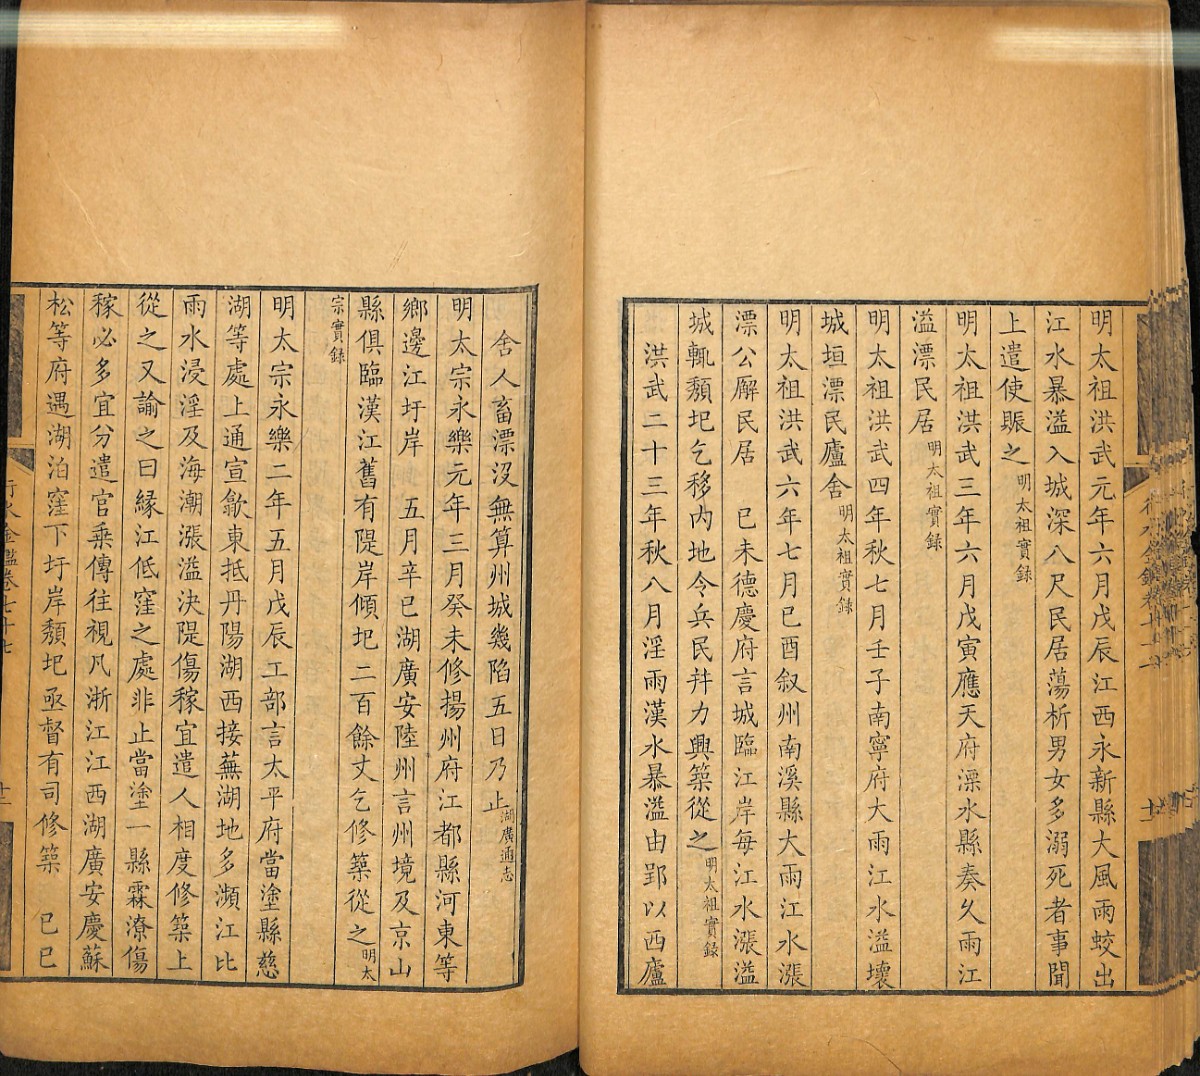 明太祖洪武元年六月戊辰江西永新縣大風雨蛟出
江水暴溢入城深八尺民居蕩析男女多溺死者事聞
上遣使賑之明太祖實錄
明太祖洪武三年六月戊寅應天府溧水縣奏久雨江
溢漂民居明太祖實錄
明太祖洪武四年秋七月壬子南寧府大雨江水溢壞
城垣漂民廬舍明太祖實錄
明太祖洪武六年七月己酉叙州南溪縣大雨江水漲
漂公廨民居 己未德慶府言城臨江岸每江水漲溢
城輒頹圯乞移內地令兵民幷力興築從之明太祖實錄
洪武二十三年秋八月淫雨漢水暴溢由郢以西廬
舍人畜漂沒無算州城幾陷五日乃止湖廣通志
明太宗永樂元年三月癸未修揚州府江都縣河東等
鄉邊江圩岸 五月辛巳湖廣安陸州言州境及京山
縣俱臨漢江舊有隄岸傾圯二百餘丈乞修築從之明太
宗實錄
明太宗永樂二年五月戊辰工部言太平府當塗縣慈
湖等處上通宣歙東抵丹陽湖西接蕪湖地多瀕江比
雨水浸淫及海潮漲溢決隄傷稼宜遣人相度修築上
從之又諭之曰緣江低窪之處非止當塗一縣霖潦傷
稼必多宜分遣官乘傳往視凡浙江江西湖廣安慶蘇
松等府遇湖泊窪下圩岸頹圯亟督有司修築 己巳
行水金鑑卷七十七
十二